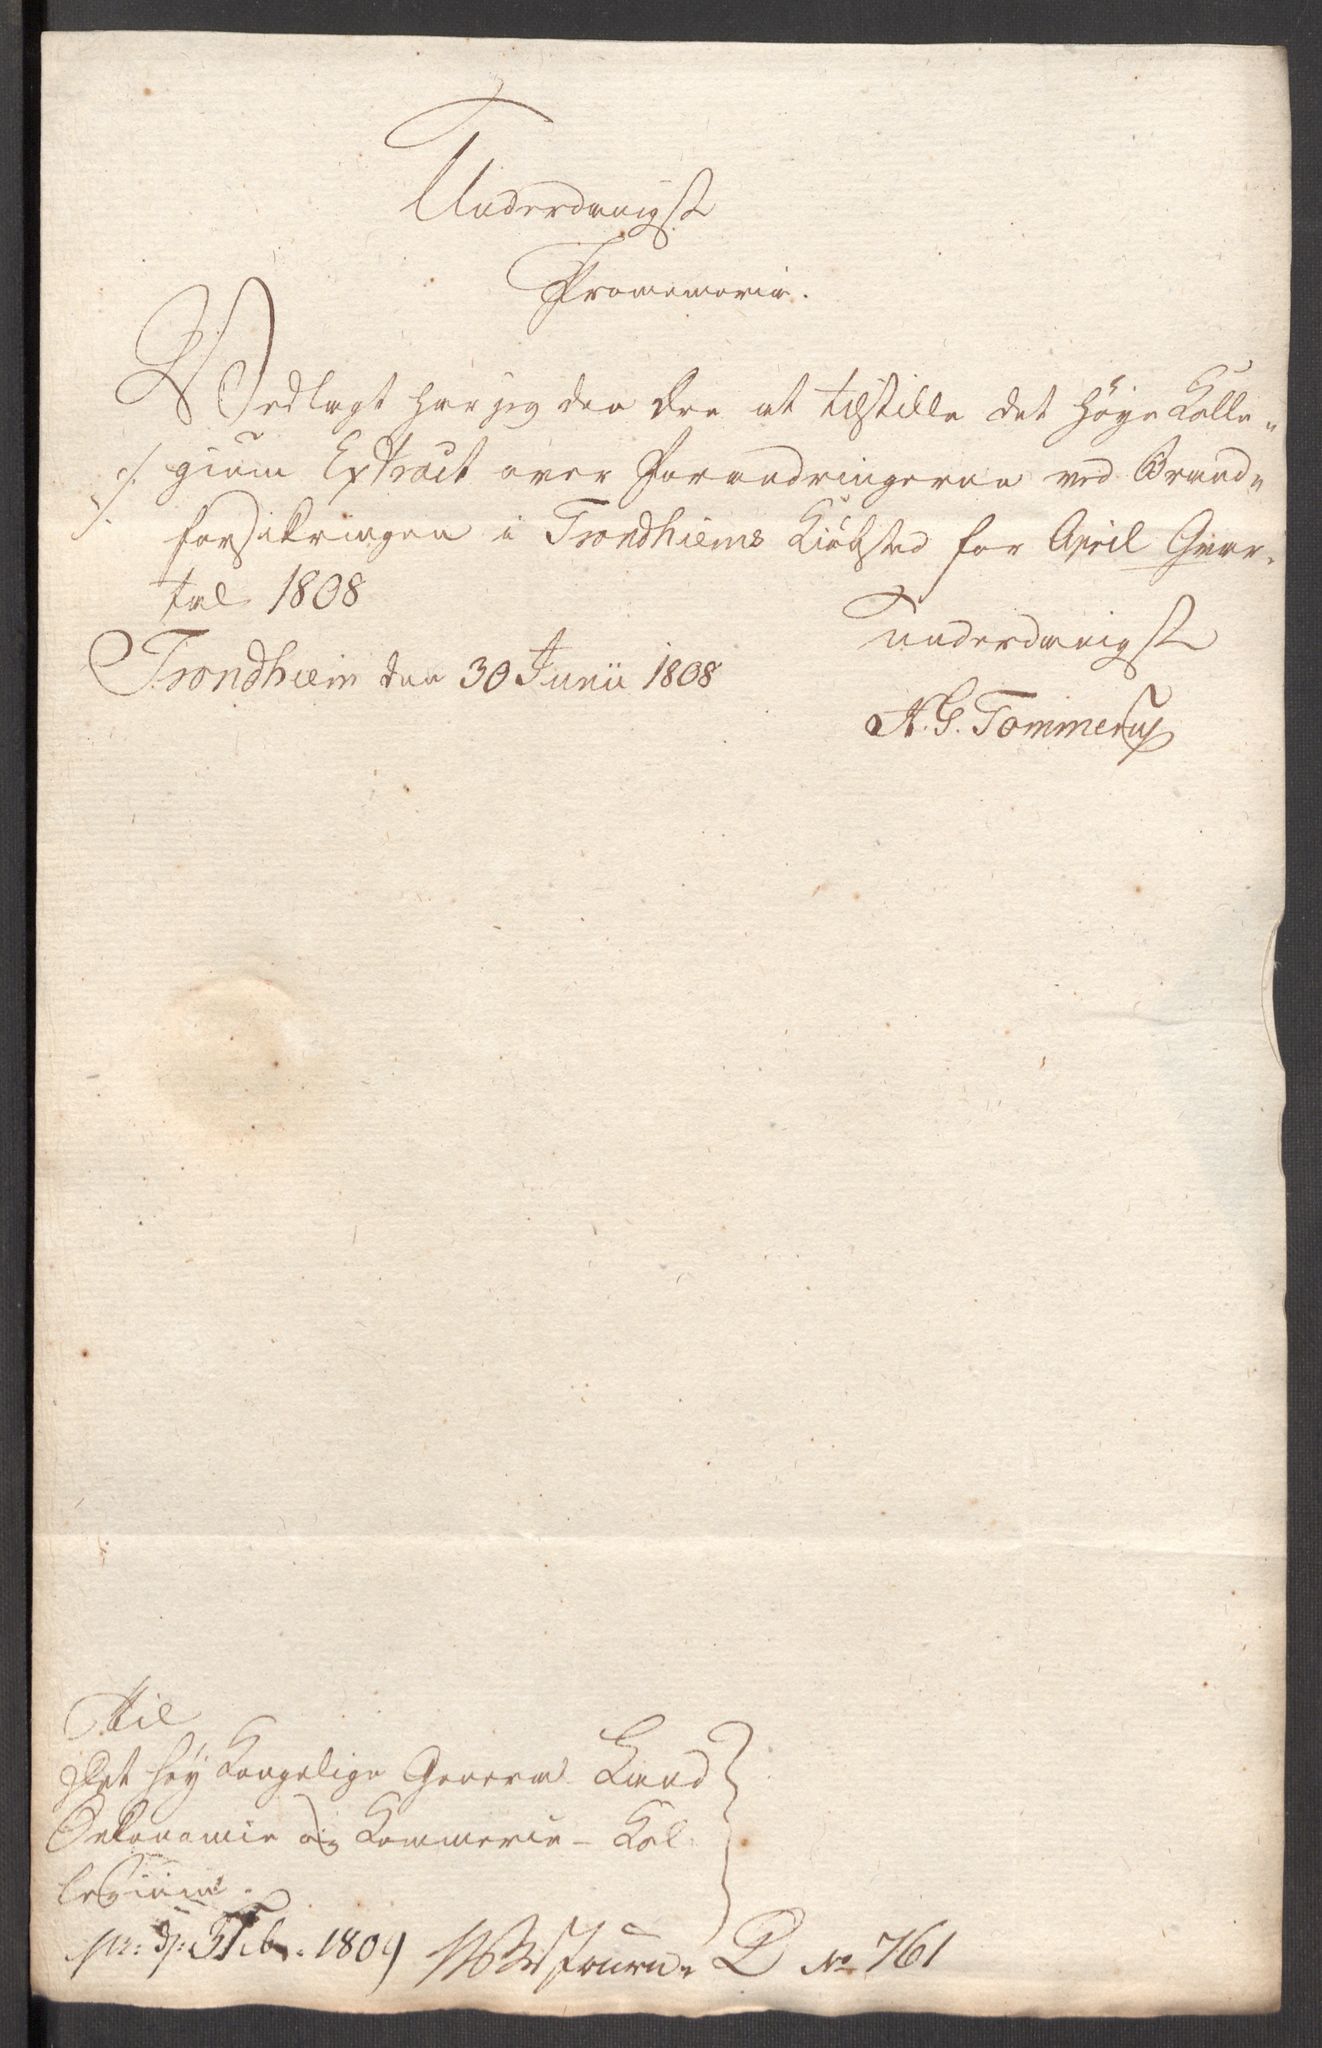 Underdanigst
Promemoria.
Vedlagt har jeg den Ære at tilstille det høye Colle-
./. gium Extract over Forandringerne ved Brand-
./. forsikringen i Trondhiems Kiøbsted for April Qvar-
tal 1808
underdanigst
Trondhiem den 30 Junii 1808
H. G. Tommerup
Til
Det høy Kongelige General Land
Oekonomie og Kommerce-Col-
legium.
pr: d: Feb: 1809 Journ: D No 761